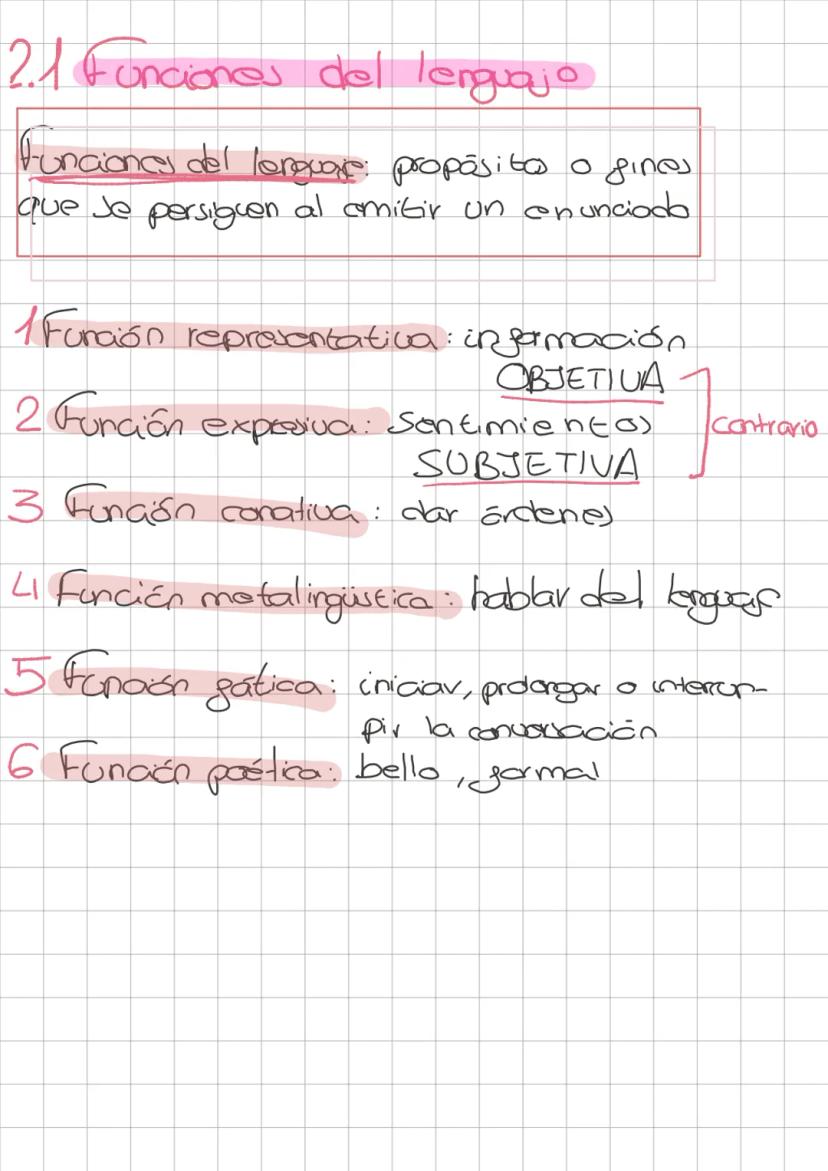 2.1 Funciones del lenguaje
Funciones del lenguaje: propósito o fines
que se persiguen al emitir un enunciado
1 Función representativa: información
OBJETIVA
2 Función expresiva: sentimientos
contrario
SUBJETIVA
3 Función conativa: dar órdenes
4 Función metalingüística: hablar del lenguaje
5 Función fática: iniciar, prolongar o interrum-
pir la conversación
6 Función poética: bello, formal